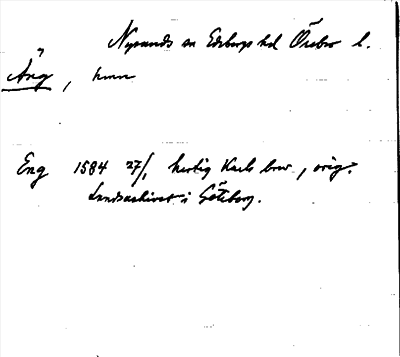 Nysunds sn Edsbergs hd Örebro l.
Äng, hmn
Eng 1584 27/1 hertig Karls brev, orig.
Landsarkivet i Göteborg.